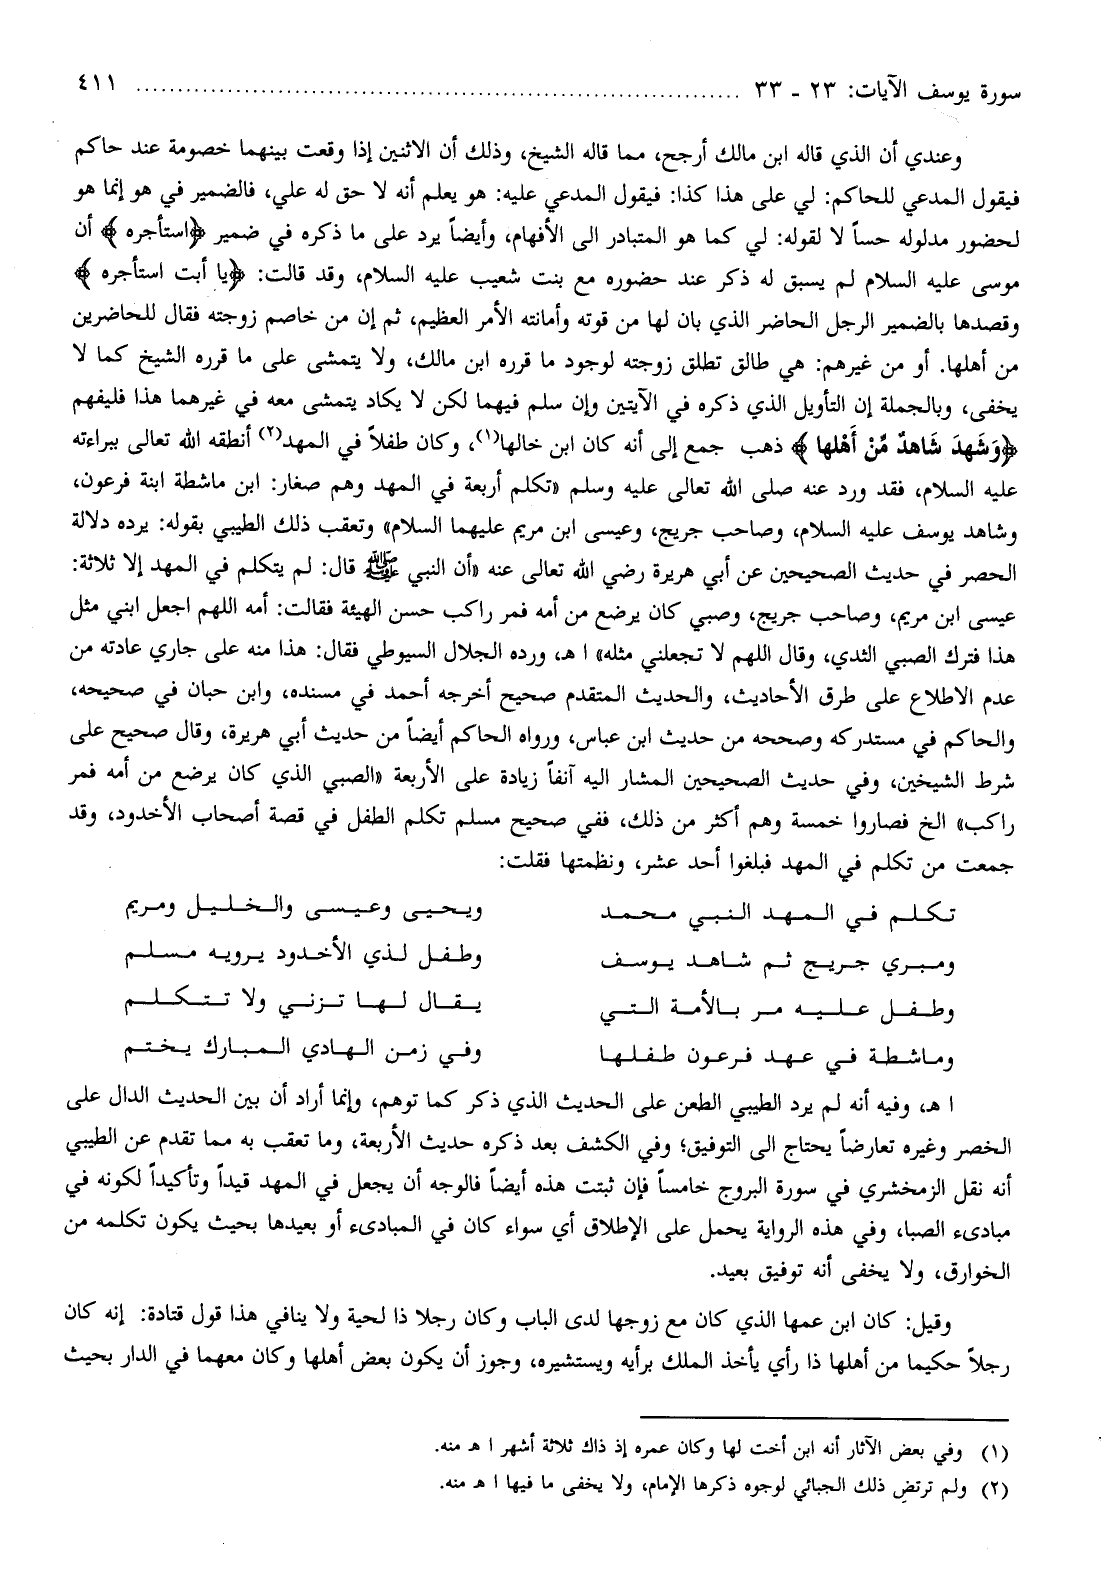 سورة يوسف الآيات: ٢٣ ـ ٣٣ ........................................................................ ٤١١
وعندي أن الذي قاله ابن مالك أرجح، مما قاله الشيخ، وذلك أن الاثنين إذا وقعت بينهما خصومة عند حاكم
فيقول المدعي للحاكم: لي على هذا كذا: فيقول المدعي عليه: هو يعلم أنه لا حق له علي، فالضمير في هو إنما هو
لحضور مدلوله حساً لا لقوله: لي كما هو المتبادر الى الأفهام، وأيضاً يرد على ما ذكره في ضمير ﴿استأجره﴾ أن
موسى عليه السلام لم يسبق له ذكر عند حضوره مع بنت شعيب عليه السلام، وقد قالت: ﴿يا أبت استأجره﴾
وقصدها بالضمير الرجل الحاضر الذي بان لها من قوته وأمانته الأمر العظيم، ثم إن من خاصم زوجته فقال للحاضرين
من أهلها. أو من غيرهم: هي طالق تطلق زوجته لوجود ما قرره ابن مالك، ولا يتمشى على ما قرره الشيخ كما لا
يخفى، وبالجملة إن التأويل الذي ذكره في الآيتين وإن سلم فيهما لكن لا يكاد يتمشى معه في غيرهما هذا فليفهم
﴿وَشَهِدَ شَاهِدٌ مِّنْ أَهْلها﴾ ذهب جمع إلى أنه كان ابن خالها(١)، وكان طفلاً في المهد(٢) أنطقه الله تعالى ببراءته
عليه السلام، فقد ورد عنه صلى الله تعالى عليه وسلم «تكلم أربعة في المهد وهم صغار: ابن ماشطة ابنة فرعون،
وشاهد يوسف عليه السلام، وصاحب جريج، وعيسى ابن مريم عليهما السلام» وتعقب ذلك الطيبي بقوله: يرده دلالة
الحصر في حديث الصحيحين عن أبي هريرة رضي الله تعالى عنه «أن النبي ﷺ قال: لم يتكلم في المهد إلا ثلاثة:
عيسى ابن مريم، وصاحب جريج، وصبي كان يرضع من أمه فمر راكب حسن الهيئة فقالت: أمه اللهم اجعل ابني مثل
هذا فترك الصبي الثدي، وقال اللهم لا تجعلني مثله» ا هـ، ورده الجلال السيوطي فقال: هذا منه على جاري عادته من
عدم الاطلاع على طرق الأحاديث، والحديث المتقدم صحيح أخرجه أحمد في مسنده، وابن حبان في صحيحه،
والحاكم في مستدركه وصححه من حديث ابن عباس، ورواه الحاكم أيضاً من حديث أبي هريرة، وقال صحيح على
شرط الشيخين، وفي حديث الصحيحين المشار اليه آنفاً زيادة على الأربعة «الصبي الذي كان يرضع من أمه فمر
راكب» الخ فصاروا خمسة وهم أكثر من ذلك، ففي صحيح مسلم تكلم الطفل في قصة أصحاب الأخدود، وقد
جمعت من تكلم في المهد فبلغوا أحد عشر، ونظمتها فقلت:
تكلم في المهد النبي محمد ويحيى وعيسى والخليل ومريم
ومبري جريج ثم شاهد يوسف وطفل لذي الأخدود يرويه مسلم
وطفل عليه مر بالأمة التي يقال لها تزني ولا تتكلم
وماشطة في عهد فرعون طفلها وفي زمن الهادي المبارك يختم
ا هـ، وفيه أنه لم يرد الطيبي الطعن على الحديث الذي ذكر كما توهم، وإنما أراد أن بين الحديث الدال على
الخصر وغيره تعارضاً يحتاج الى التوفيق؛ وفي الكشف بعد ذكره حديث الأربعة، وما تعقب به مما تقدم عن الطيبي
أنه نقل الزمخشري في سورة البروج خامساً فإن ثبتت هذه أيضاً فالوجه أن يجعل في المهد قيداً وتأكيداً لكونه في
مبادىء الصبا، وفي هذه الرواية يحمل على الإطلاق أي سواء كان في المبادىء أو بعيدها بحيث يكون تكلمه من
الخوارق، ولا يخفى أنه توفيق بعيد.
وقيل: كان ابن عمها الذي كان مع زوجها لدى الباب وكان رجلا ذا لحية ولا ينافي هذا قول قتادة: إنه كان
رجلاً حكيما من أهلها ذا رأي يأخذ الملك برأيه ويستشيره، وجوز أن يكون بعض أهلها وكان معهما في الدار بحيث
(١) وفي بعض الآثار أنه ابن أخت لها وكان عمره إذ ذاك ثلاثة أشهر ا هـ منه.
(٢) ولم ترتض ذلك الجبائي لوجوه ذكرها الإمام، ولا يخفى ما فيها ا هـ منه.